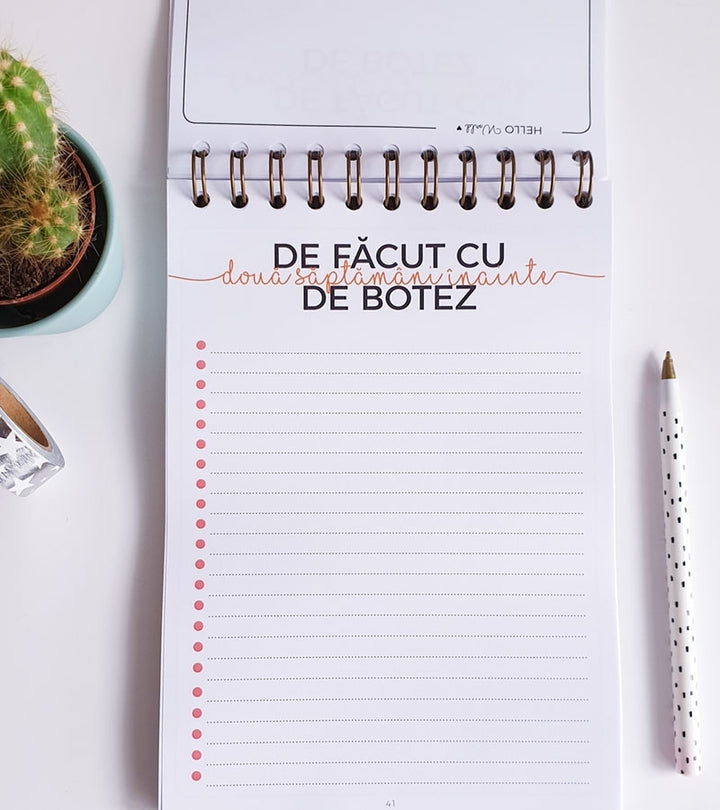 HELLO World
DE FĂCUT CU
două săptămâni înainte
DE BOTEZ
41